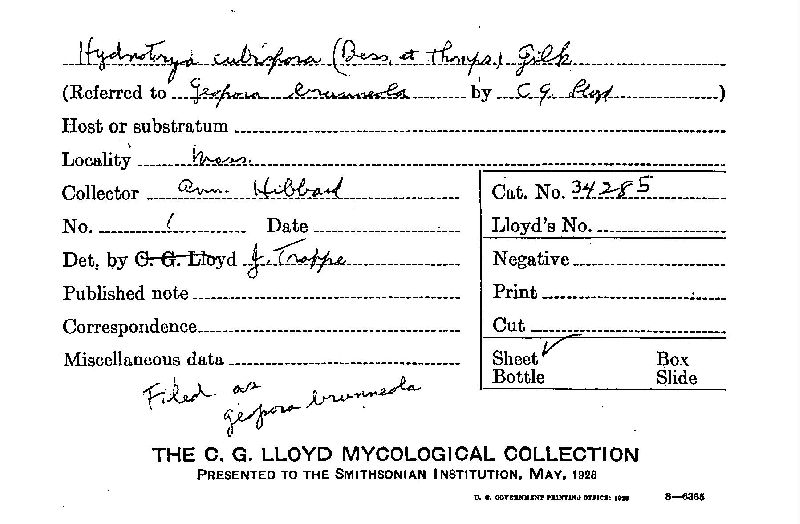 Hydnotrya cubispora (Bess. et Thomps.) Gilk
(Referred to Geopora brunneola by C G Lloyd)
Host or substratum
Locality Mass.
Collector Ann. Hibbard
No. 1 Date
Det. by C. G. Lloyd J. Trappe
Published note
Correspondence
Miscellaneous data
Cat. No. 34285
Lloyd's No.
Negative
Print
Cut
Sheet ✓ Box
Bottle Slide
Filed as
geopora brunneola
THE C. G. LLOYD MYCOLOGICAL COLLECTION
PRESENTED TO THE SMITHSONIAN INSTITUTION, MAY, 1928
U. S. GOVERNMENT PRINTING OFFICE: 1928 8—6365